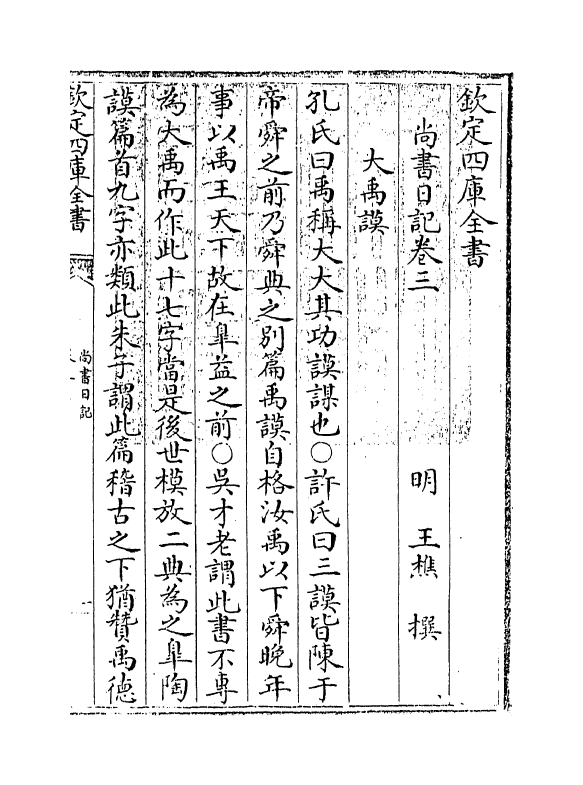 欽定四庫全書
尚書日記卷三
明 王樵 撰
大禹謨
孔氏曰禹稱大大其功謨謀也○許氏曰三謨皆陳于
帝舜之前乃舜典之别篇禹謨自格汝禹以下舜晚年
事以禹王天下故在臯益之前○吳才老謂此書不專
為大禹而作此十七字當是後世模放二典為之臯陶
謨篇首九字亦類此朱子謂此篇稽古之下猶賛禹德
欽定四庫全書
尚書日記
一